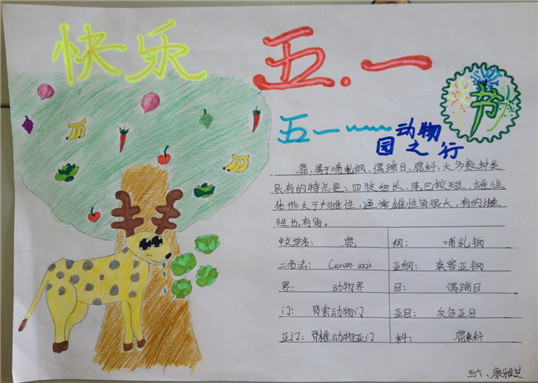 快乐 五.一 节
五一~~~动物
园之行
鹿,属于哺乳纲、偶蹄目、鹿科,大多数种类
具有的特点是:四肢细长,尾巴较短,雄性
体形大于雌性,通常雄性有角,有的雌
性也有角。
中文学名: 鹿 纲: 哺乳钢
二名法: Cervus axis 亚纲: 真兽亚钢
界: 动物界 目: 偶蹄目
门: 脊索动物门 亚目: 反刍亚目
亚门: 脊椎动物亚门 科: 鹿科